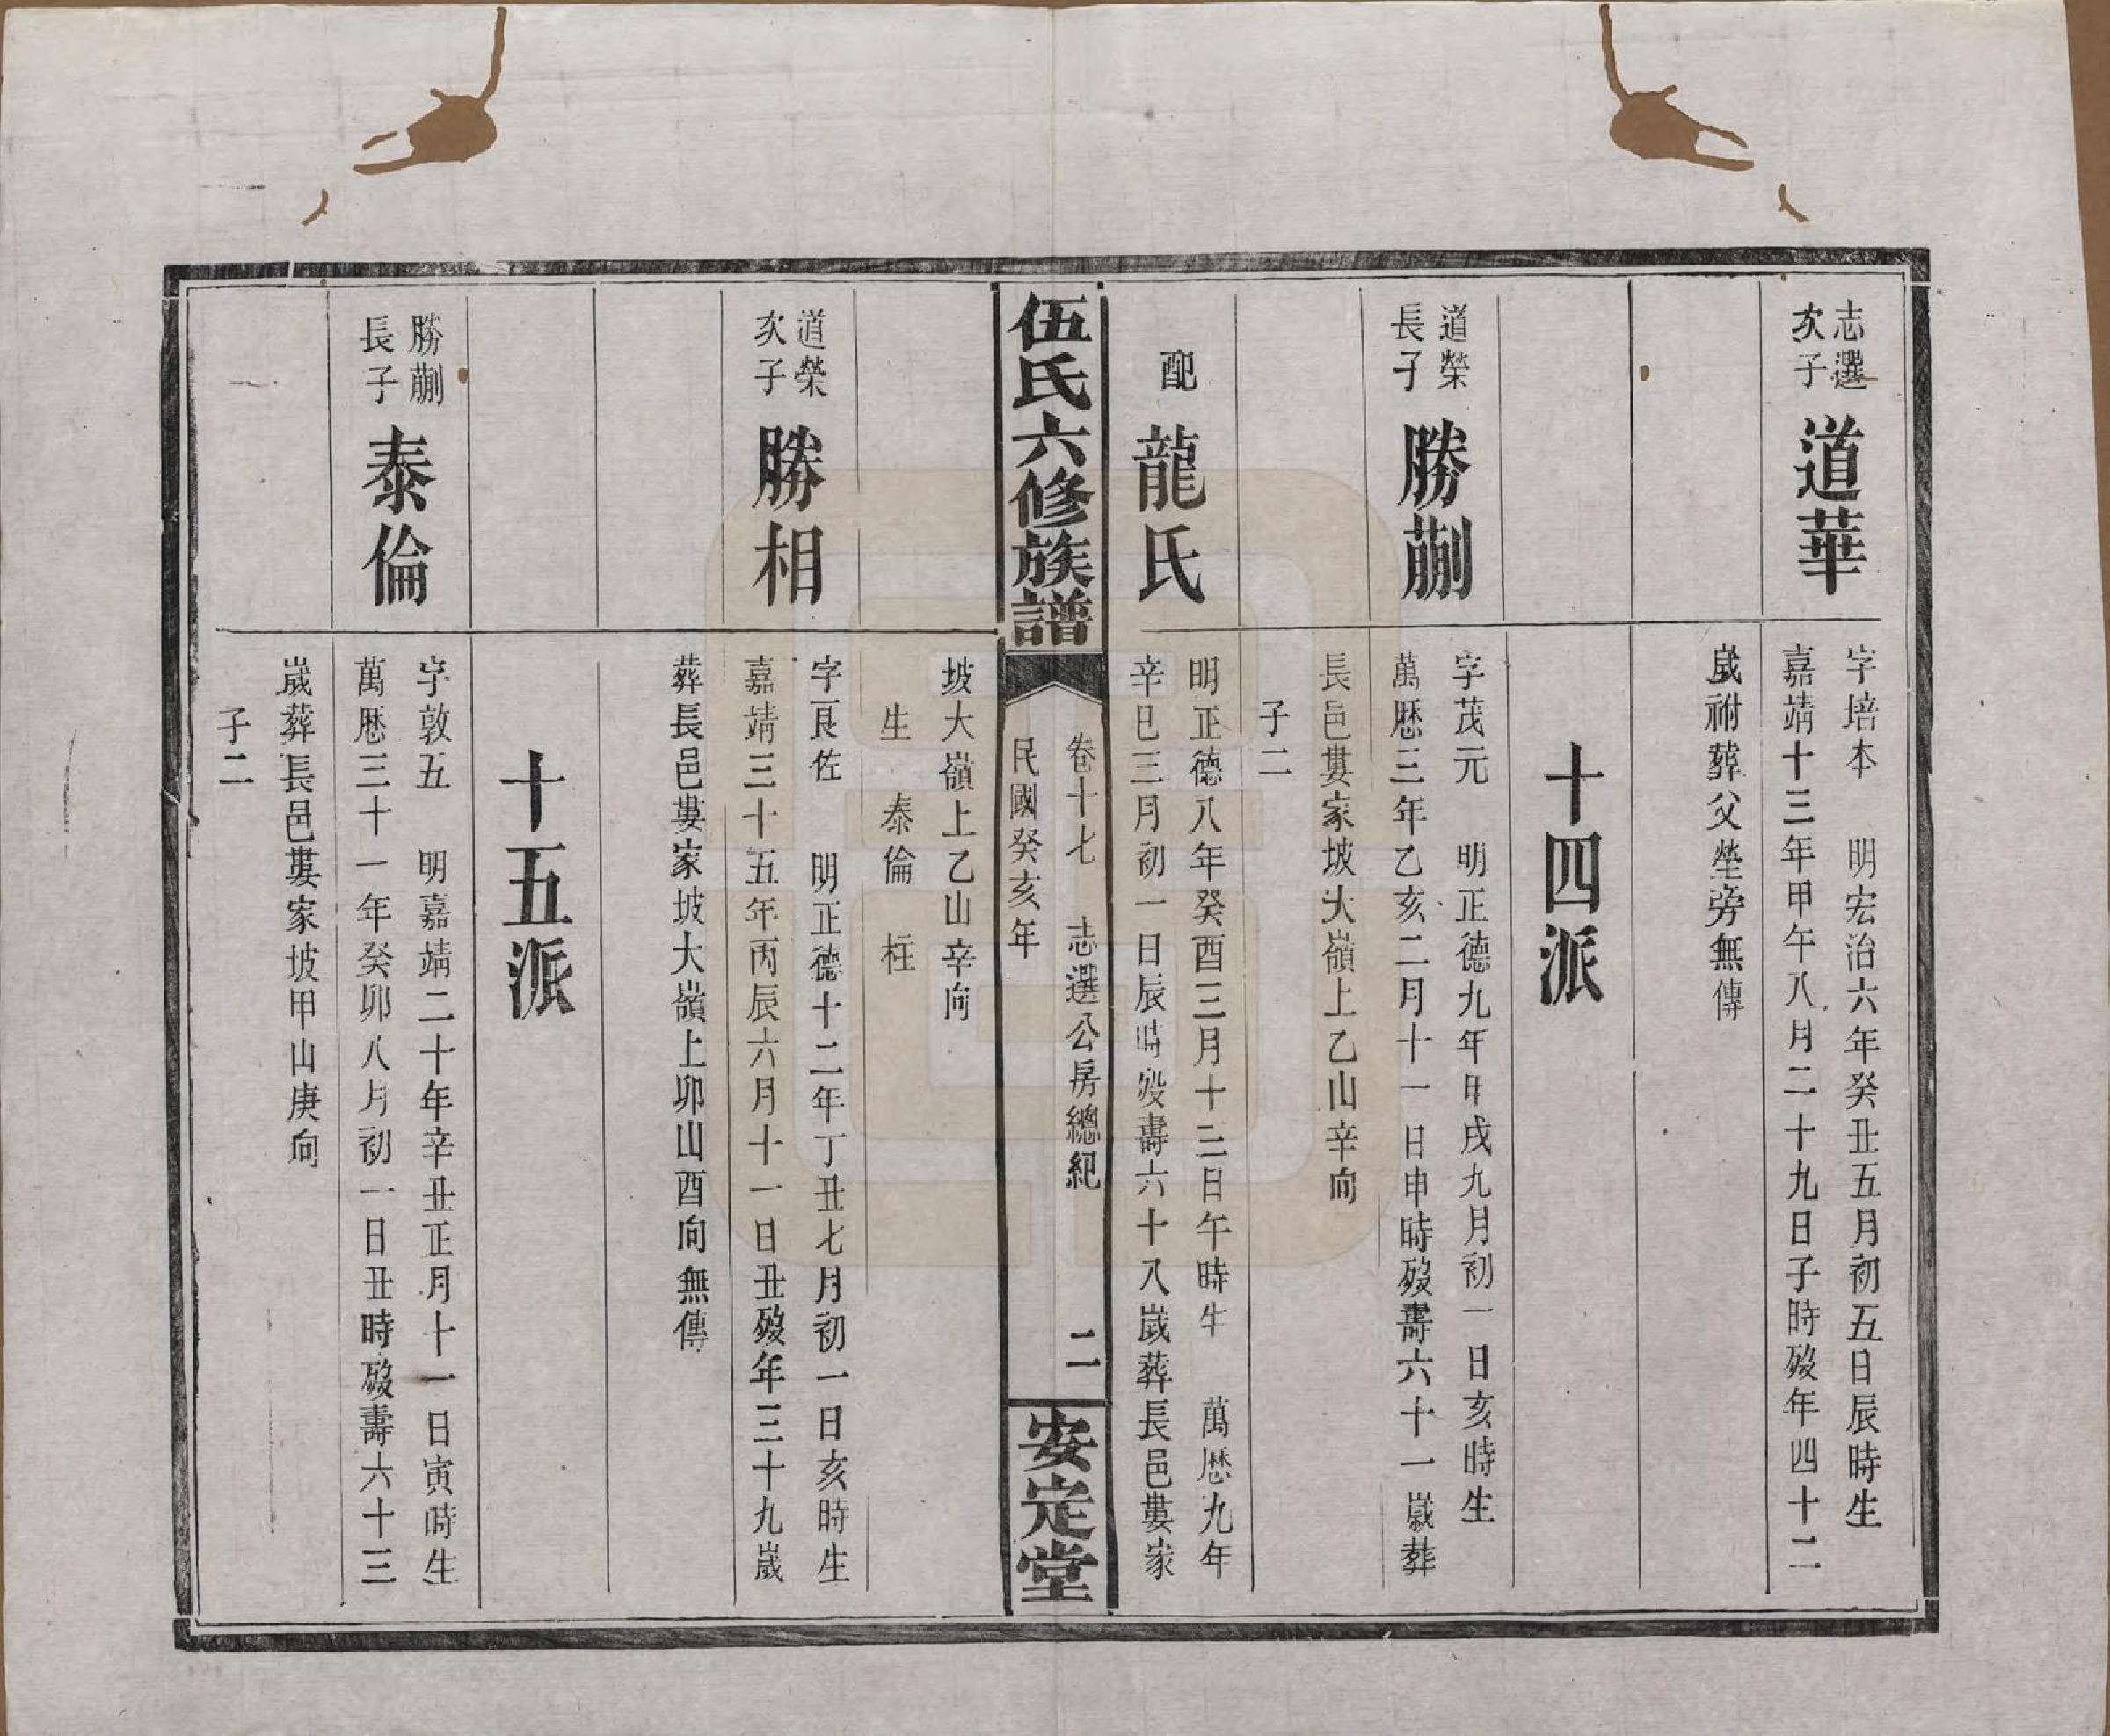 志選
次子
道華
字培本　明宏治六年癸丑五月初五日辰時生
嘉靖十三年甲午八月二十九日子時歿年四十二
歲祔葬父塋旁無傳
十四派
道榮
長子
勝蒯
字茂元　明正德九年甲戌九月初一日亥時生
萬歷三年乙亥二月十一日申時歿壽六十一歲葬
長邑婁家坡大嶺上乙山辛向
子二
配
龍氏
明正德八年癸酉三月十三日午時生　萬歷九年
辛巳三月初一日辰時歿壽六十八歲葬長邑婁家
伍氏六修族譜
卷十七　志選公房總紀　二
民國癸亥年
安定堂
坡大嶺上乙山辛向
生　泰倫　柱
道榮
次子
勝相
字良佐　明正德十二年丁丑七月初一日亥時生
嘉靖三十五年丙辰六月十一日丑歿年三十九歲
葬長邑婁家坡大嶺上卯山酉向無傳
十五派
勝蒯
長子
泰倫
字敦五　明嘉靖二十年辛丑正月十一日寅時生
萬歷三十一年癸卯八月初一日丑時歿壽六十三
歲葬長邑婁家坡甲山庚向
子二